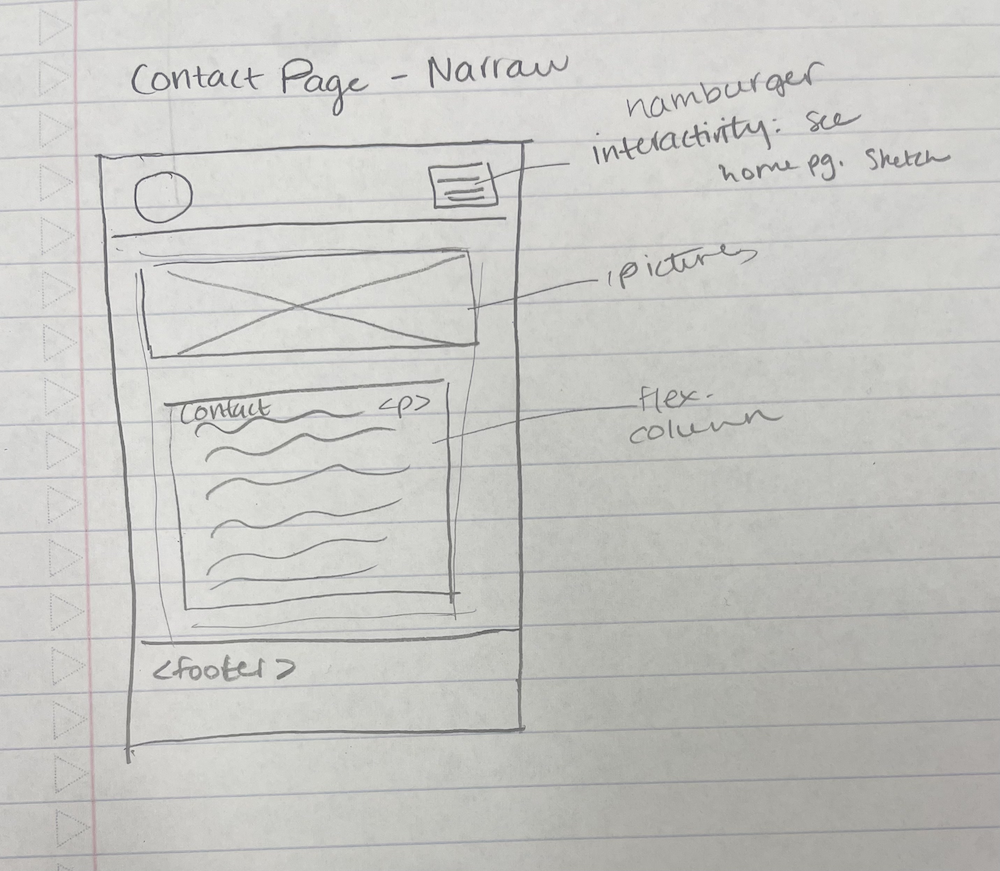 Contact Page - Narraw
hamburger
interactivity: see
home pg. Sketch
pictures
Contact <p>
flex.
column
<footer>